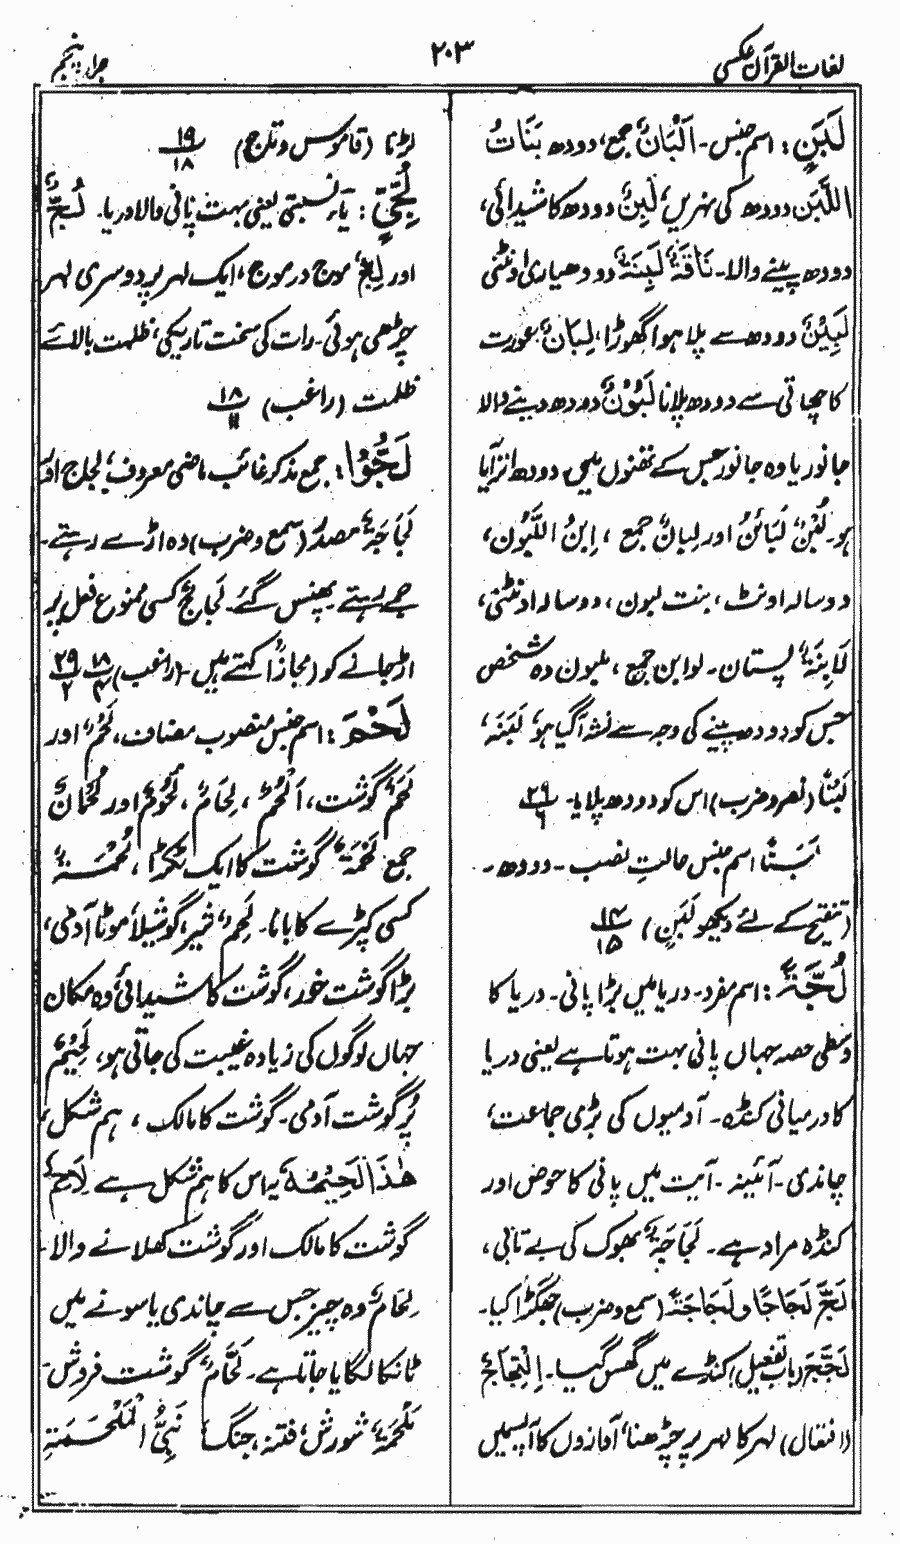 لغات القرآن عکسی
۲۰۳
جلد پنجم
لَبَنٍ: اسم جنس۔ اَلْبَانٌ جمع، دودھ بَنَاتُ
اللَّبَنِ دودھ کی نہریں، لَبِنٌ دودھ کا شیدائی،
دودھ پینے والا۔ نَاقَۃٌ لَبِنَۃٌ دودھیاری اونٹنی
لَبِیْنٌ دودھ سے پلا ہوا گھوڑا، لِبَانٌ عورت
کا چھاتی سے دودھ پلانا لَبُوْنٌ دودھ دینے والا
جانور یا وہ جانور جس کے تھنوں میں دودھ اتر آیا
ہو۔ لُبْنٌ لَبَائنُ اور لِبانٌ جمع ، اِبنُ اللَّبُون،
دوسالہ اونٹ، بنت لبون، دوسالہ اونٹنی،
لَابِنَۃٌ پستان۔ لوابن جمع، ملبون وہ شخص
جس کو دودھ پینے کی وجہ سے نشہ آگیا ہو، لَبَنَہٗ
لَبْنًا (نصر و ضرب) اس کو دودھ پلایا۔ ۲۹/۶
لَبَنًا اسم جنس حالتِ نصب ۔ دودھ ۔
(تنقیح کے لئے دیکھو لَبَنٍ) ۱۴/۱۵
لُجَّۃً: اسم مفرد۔ دریا میں بڑا پانی۔ دریا کا
وسطی حصہ جہاں پانی بہت ہوتا ہے یعنی دریا
کا درمیانی کنڈہ۔ آدمیوں کی بڑی جماعت،
چاندی۔ آئینہ۔ آیت میں پانی کا حوض اور
کنڈہ مراد ہے۔ لَجَاجَۃٌ بھوک کی بے تابی،
لَجَّ لَجَاجًا و لَجَاجَۃً (سمع و ضرب) جھگڑا کیا۔
لَجَّجَ (باب تفعیل) کنڈے میں گھس گیا۔ اِلْتِجَاجٌ
(افتعال) لہر کا لہر پر چڑھنا، آوازوں کا آپس میں
لڑنا (قاموس و تاج) ۱۹/۱۸
لُجِّیٍّ: یآء نسبتی یعنی بہت پانی والا دریا۔ لُجٌّ
اور لِجٌّ موج در موج، ایک لہر پر دوسری لہر
چڑھی ہوئی۔ رات کی سخت تاریکی، ظلمت بالائے
ظلمت (راغب) ۱۸/۱۱
لَجُّوْا: جمع مذکر غائب ماضی معروف، لجاج اور
لَجَاجَۃٌ مصدر (سمع و ضرب) وہ اڑے رہتے۔
جمے رہتے پھنس گئے۔ لَجَاجٌ کسی ممنوع فعل پر
اڑ جانے کو (مجازًا) کہتے ہیں۔ (راغب) ۱۸/۴ ۲۹/۲
لَحْمَ: اسم جنس منصوب مضاف، لَحْمٌ اور
لَحَمٌ گوشت، اَلْحُمٌ، لِحَامٌ، لُحُومٌ اور لُحْمَانٌ
جمع لَحْمَۃٌ گوشت کا ایک ٹکڑا، لُحْمَۃٌ
کسی کپڑے کا بانا۔ لَحِمٌ شیر، گوشیلا، موٹا آدمی،
بڑا گوشت خور، گوشت کا شیدائی، وہ مکان
جہاں لوگوں کی زیادہ غیبت کی جاتی ہو، لَحِیْمٌ
پُر گوشت آدمی۔ گوشت کا مالک، ہم شکل،
ھٰذَا لَحِیْمُہٗ یہ اس کا ہم شکل ہے لَاحِمٌ
گوشت کا مالک اور گوشت کھلانے والا۔
لِحَامٌ وہ چیز جس سے چاندی یا سونے میں
ٹانکا لگایا جاتا ہے۔ لَحَّامٌ گوشت فروش۔
مَلْحَمَۃٌ شورش، فتنہ، جنگ نَبِیُّ الْمَلْحَمَۃِ